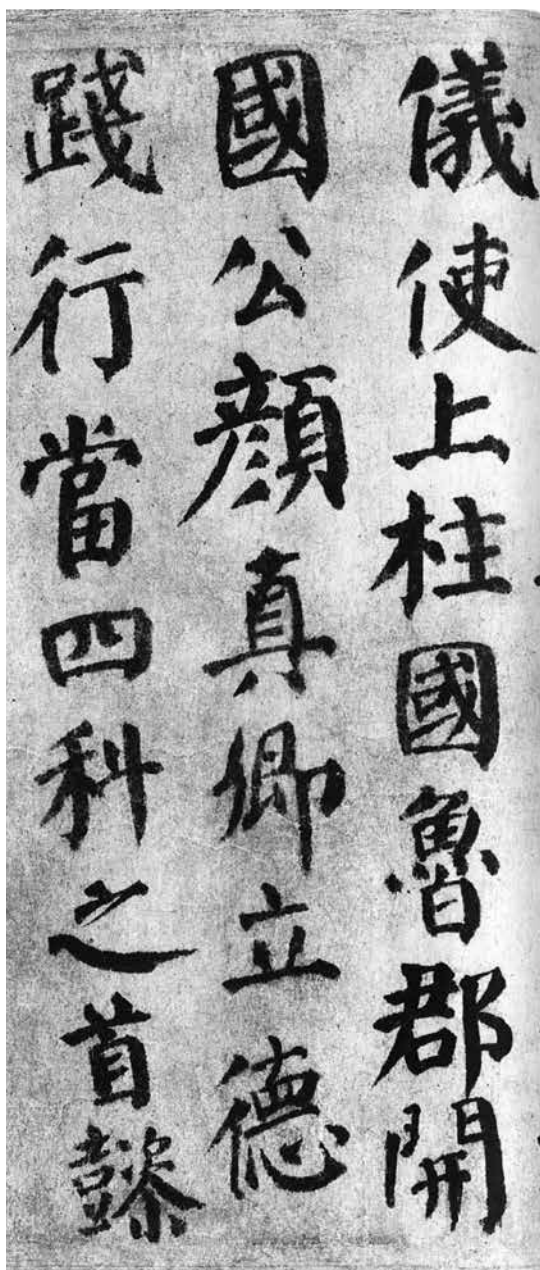 儀使上柱國魯郡開
國公顔真卿立德
踐行當四科之首懿